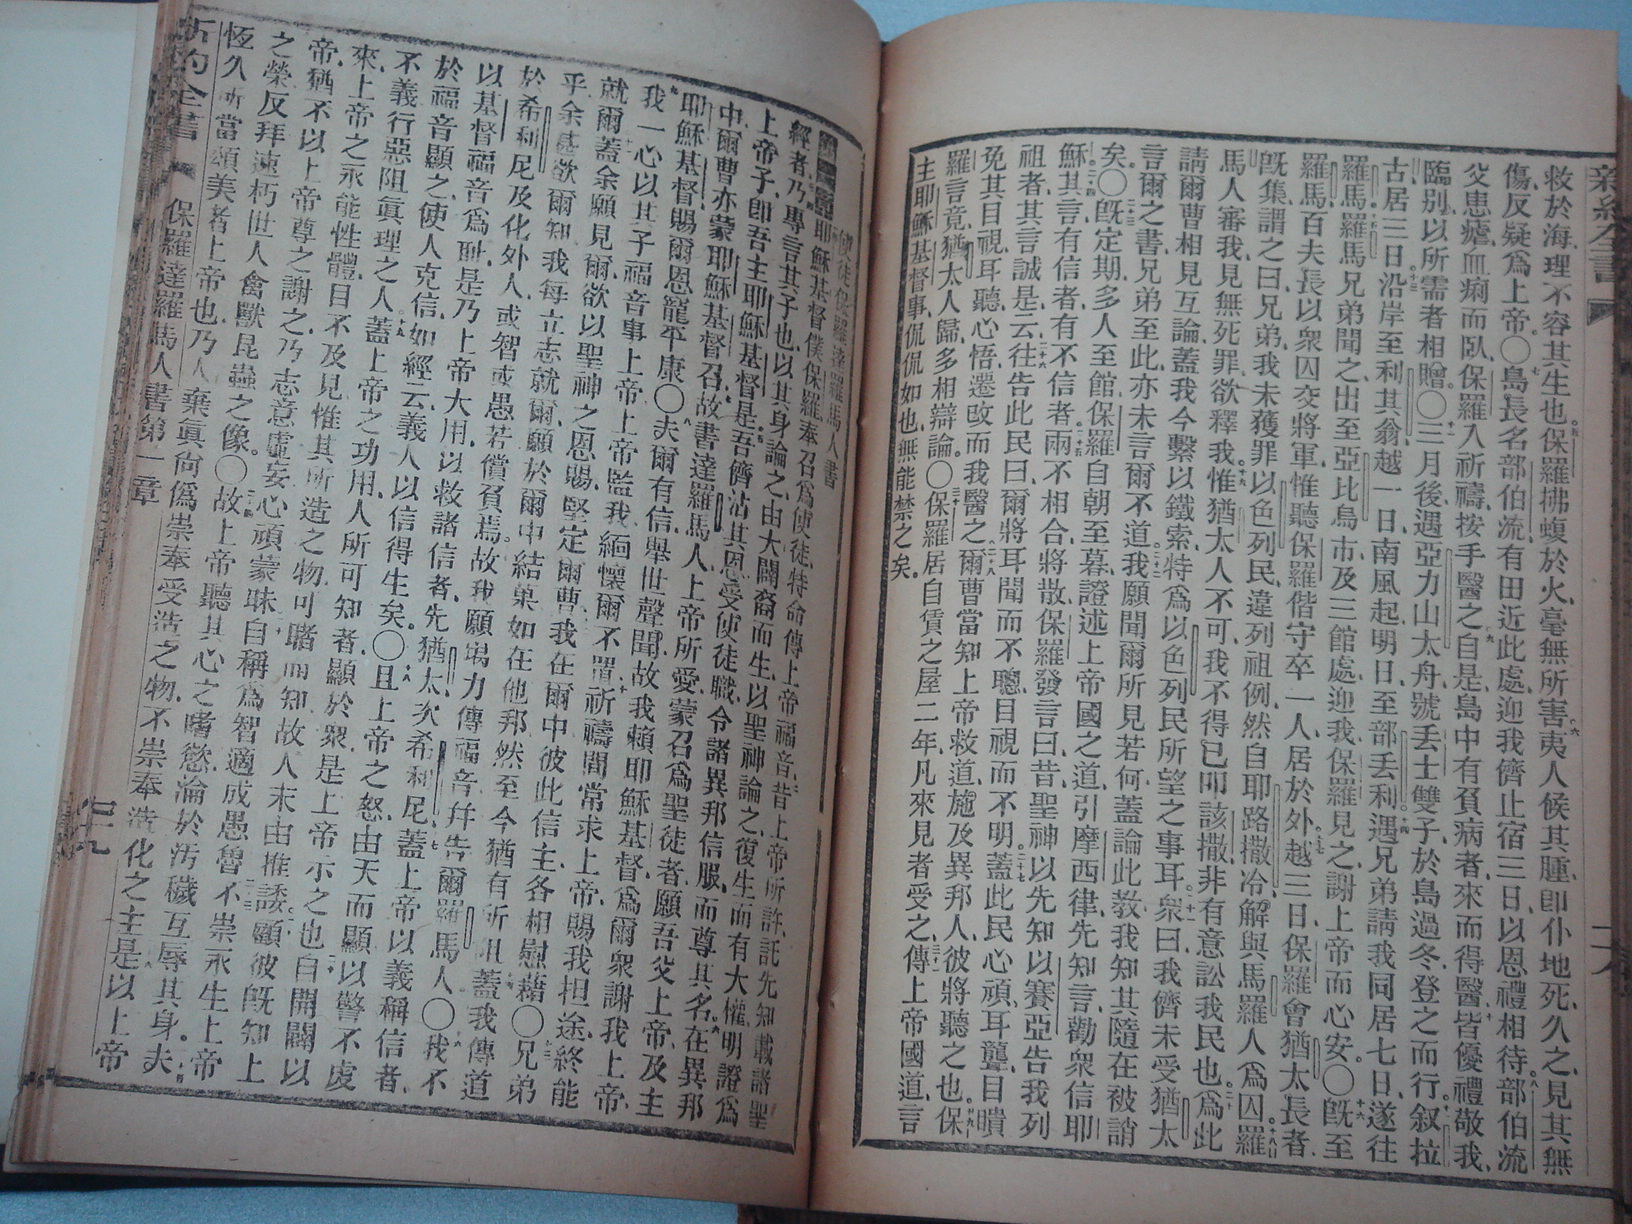 新約全書
救於海理不容其生也保羅拂蝮於火毫無所害夷人候其腫卽仆地死久之見其無
傷反疑爲上帝〇島長名部伯流有田近此處迎我儕止宿三日以恩禮相待部伯流
父患瘧血痢而臥保羅入祈禱按手醫之自是島中有負病者來而得醫皆優禮敬我
臨別以所需者相贈〇三月後遇亞力山太舟號丢士雙子於島過冬登之而行叙拉
古居三日沿岸至利其翁越一日南風起明日至部丢利遇兄弟請我同居七日遂往
羅馬羅馬兄弟聞之出至亞比烏市及三館處迎我保羅見之謝上帝而心安〇旣至
羅馬百夫長以衆囚交將軍惟聽保羅偕守卒一人居於外越三日保羅會猶太長者
旣集謂之曰兄弟我未獲罪以色列民違列祖例然自耶路撒冷解與馬羅人爲囚羅
馬人審我見無死罪欲釋我惟猶太人不可我不得已叩該撒非有意訟我民也爲此
請爾曹相見互論蓋我今繫以鐵索特爲以色列民所望之事耳衆曰我儕未受猶太
言爾之書兄弟至此亦未言爾不道我願聞爾所見若何蓋論此教我知其隨在被誚
矣〇旣定期多人至館保羅自朝至暮證述上帝國之道引摩西律先知言勸衆信耶
穌其言有信者有不信者兩不相合將散保羅發言曰昔聖神以先知以賽亞告我列
祖者其言誠是云往告此民曰爾將耳聞而不聰目視而不明蓋此民心頑耳聾目瞶
免其目視耳聽心悟遷改而我醫之爾曹當知上帝救道施及異邦人彼將聽之也保
羅言竟猶太人歸多相辯論〇保羅居自賃之屋二年凡來見者受之傳上帝國道言
主耶穌基督事侃侃如也無能禁之矣
使徒保羅達羅馬人書
耶穌基督僕保羅奉召爲使徒特命傳上帝福音昔上帝所許託先知載諸聖
經者乃專言其子也以其身論之由大闢裔而生以聖神論之復生而有大權明證爲
上帝子卽吾主耶穌基督是吾儕沾其恩受使徒職令諸異邦信服而尊其名在異邦
中爾曹亦蒙耶穌基督召故書達羅馬人上帝所愛蒙召爲聖徒者願吾父上帝及主
耶穌基督賜爾恩寵平康〇夫爾有信舉世聲聞故我賴耶穌基督爲爾衆謝我上帝
我一心以其子福音事上帝上帝監我緬懷爾不置祈禱間常求上帝賜我坦途終能
就爾蓋余願見爾欲以聖神之恩賜堅定爾曹我在爾中彼此信主各相慰藉〇兄弟
乎余甚欲爾知我每立志就爾願於爾中結菓如在他邦然至今猶有所阻蓋我傳道
於希利尼及化外人或智或愚若償負焉故我願竭力傳福音幷告爾羅馬人〇我不
以基督福音爲恥是乃上帝大用以救諸信者先猶太次希利尼蓋上帝以義稱信者
於福音顯之使人克信如經云義人以信得生矣〇且上帝之怒由天而顯以警不虔
不義行惡阻眞理之人蓋上帝之功用人所可知者顯於衆是上帝示之也自開闢以
來上帝之永能性體目不及見惟其所造之物可睹而知故人末由推諉顧彼旣知上
帝猶不以上帝尊之謝之乃志意虛妄心頑蒙昧自稱爲智適成愚魯不崇永生上帝
之榮反拜速朽世人禽獸昆蟲之像〇故上帝聽其心之嗜慾淪於污穢互辱其身夫
棄眞尙僞崇奉受造之物不崇奉造化之主是以上帝
恆久所當頌美者上帝也乃人
新約全書
保羅達羅馬人書第一章